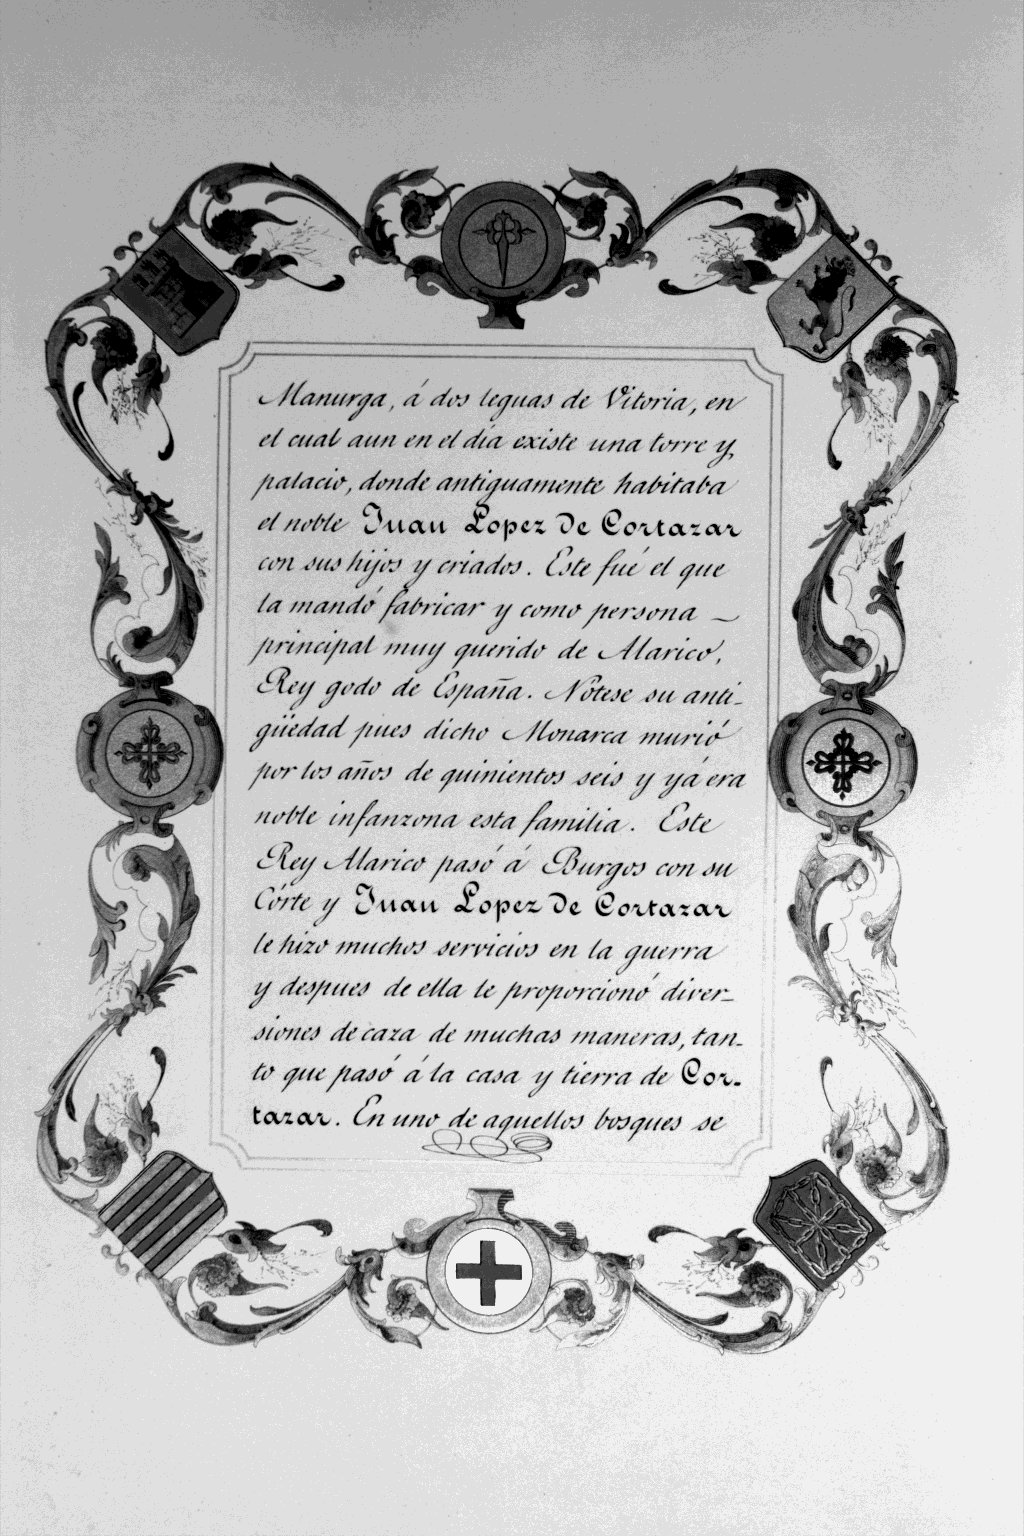 Manurga, á dos leguas de Vitoria, en
el cual aun en el dia existe una torre y
palacio, donde antiguamente habitaba
el noble Juan Lopez de Cortazar
con sus hijos y criados. Este fué el que
la mandó fabricar y como persona —
principal muy querido de Alarico,
Rey godo de España. Nótese su anti-
güedad pues dicho Monarca murió
por los años de quinientos seis y yá era
noble infanzona esta familia. Este
Rey Alarico pasó á Burgos con su
Córte y Juan Lopez de Cortazar
le hizo muchos servicios en la guerra
y despues de ella le proporcionó diver-
siones de caza de muchas maneras, tan-
to que pasó á la casa y tierra de Cor-
tazar. En uno de aquellos bosques se